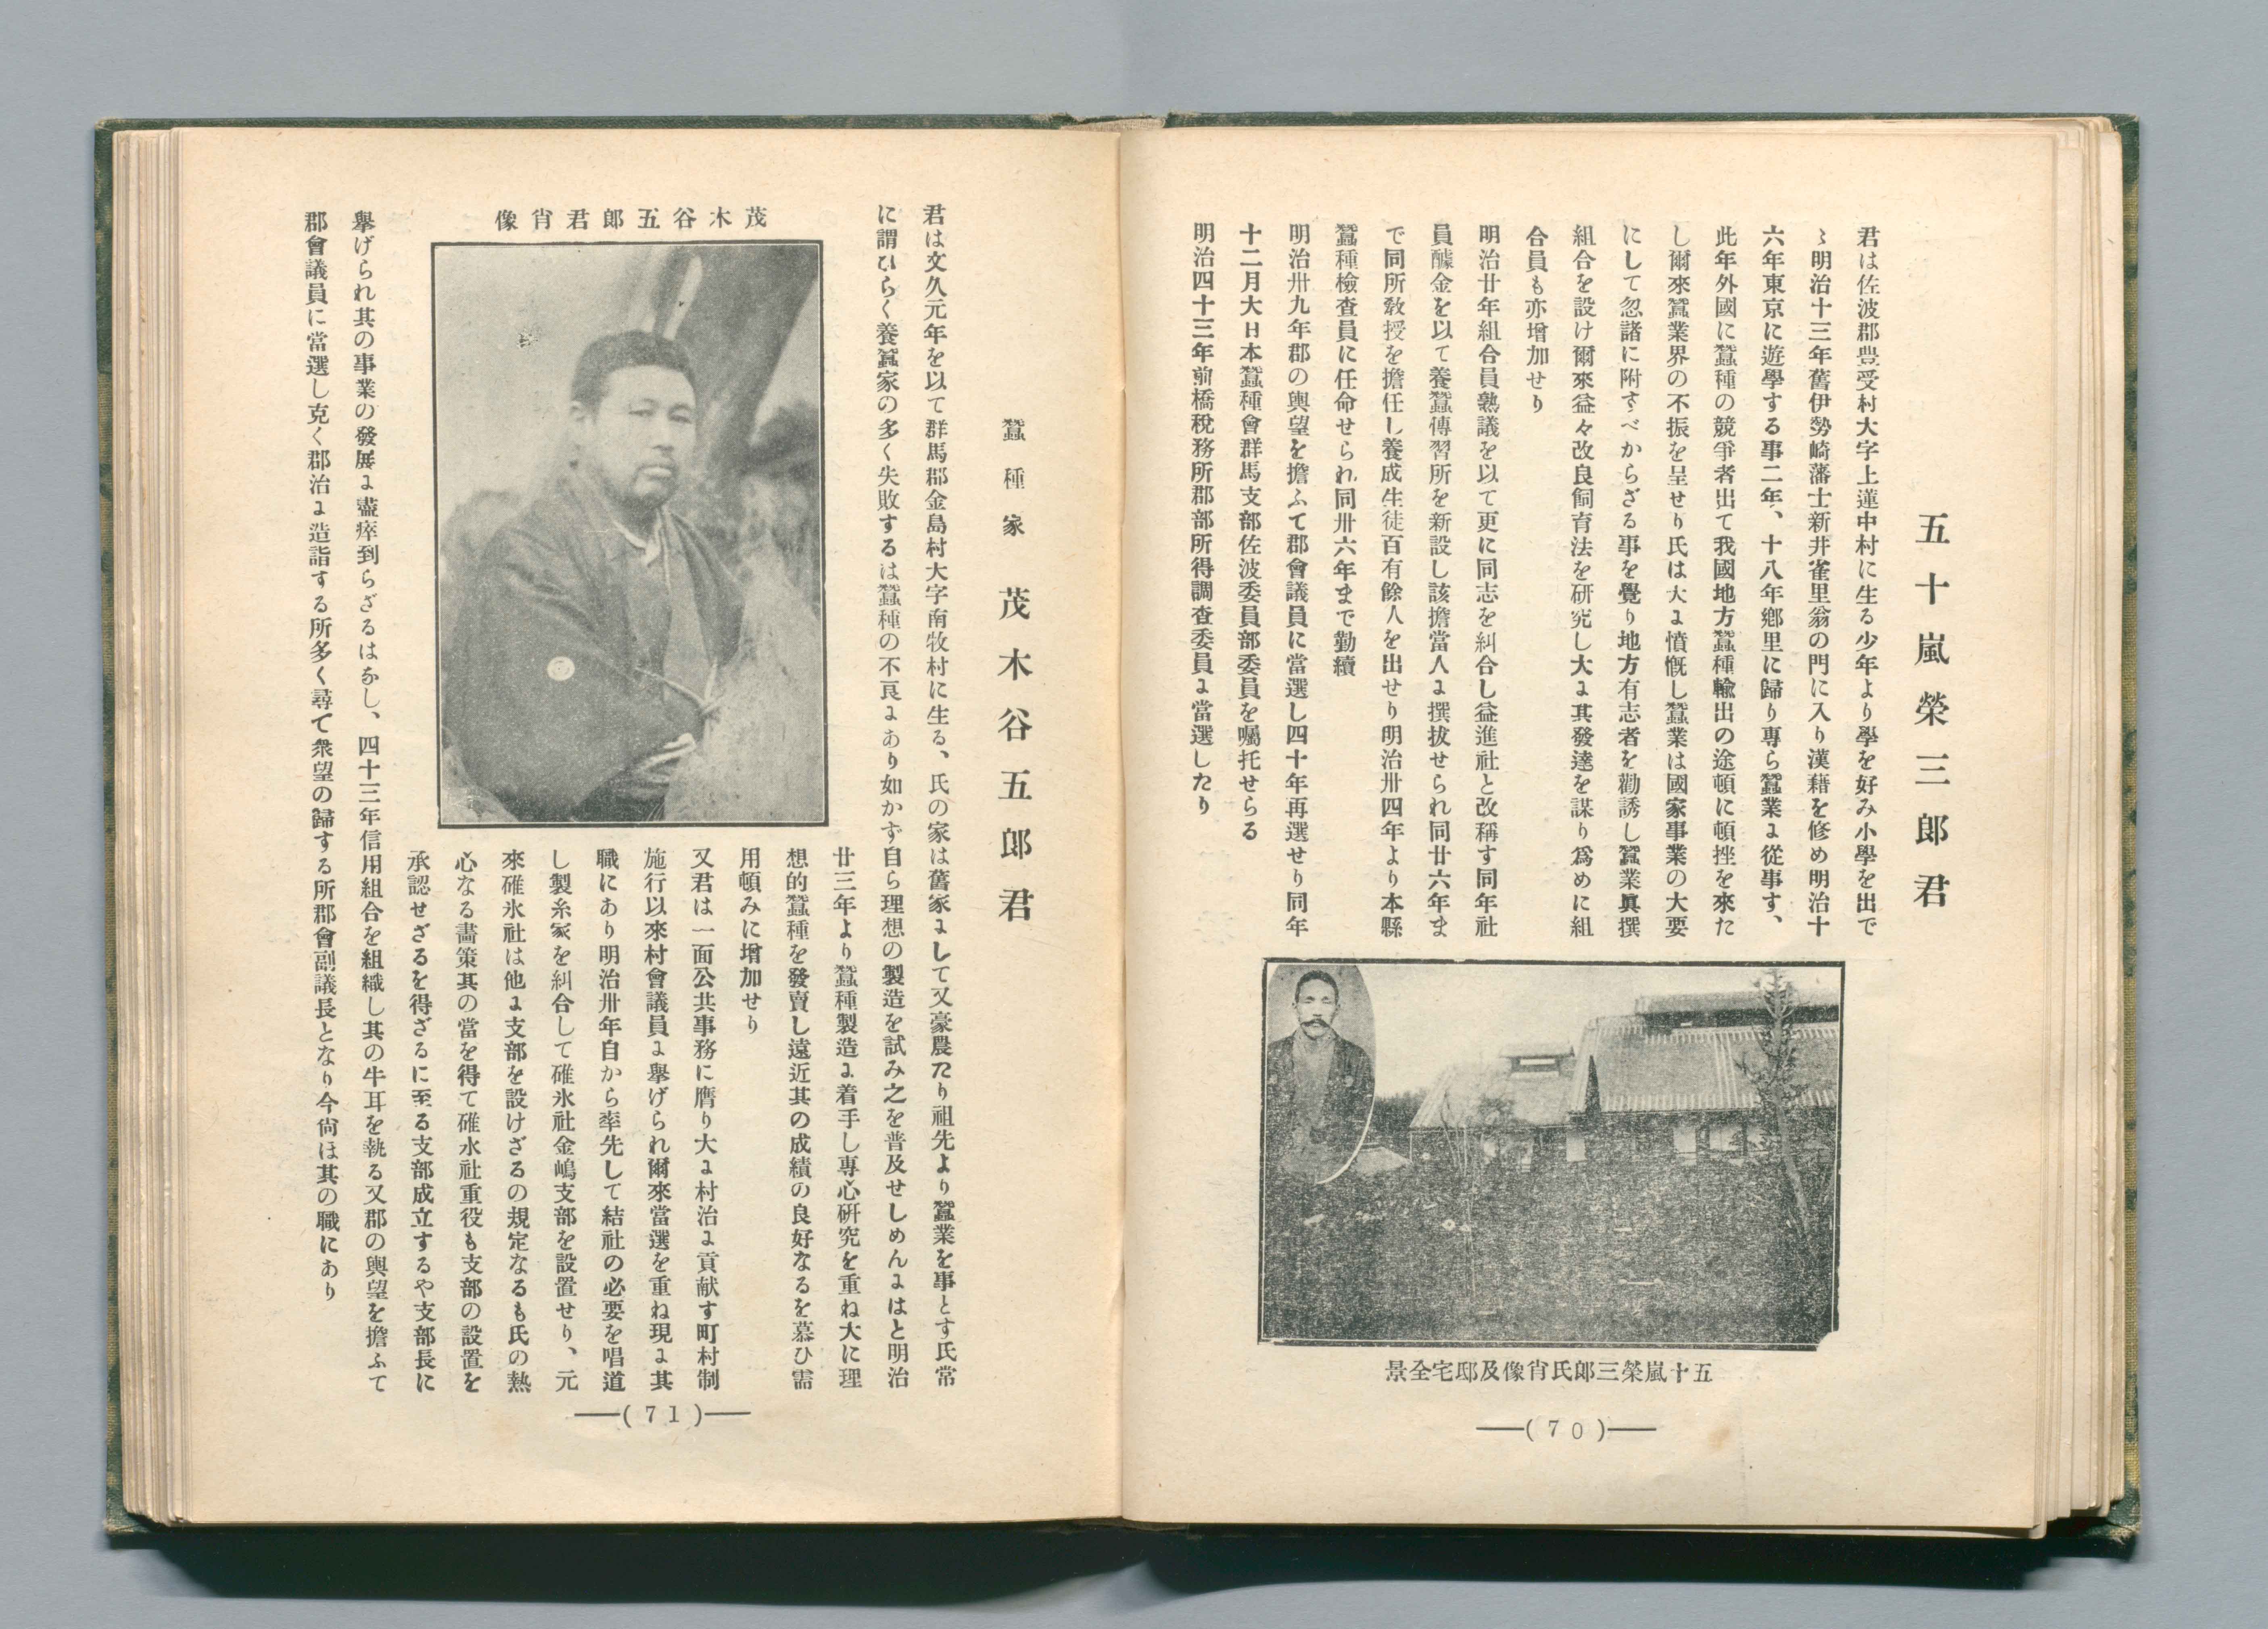 五十嵐榮三郎君
君は佐波郡豊受村大字上蓮中村に生る少年より學を好み小學を出で
ゝ明治十三年舊伊勢崎藩士新井雀里翁の門に入り漢籍を修め明治十
六年東京に遊學する事二年、十八年鄕里に歸り専ら蠶業に從事す、
此年外國に蠶種の競爭者出て我國地方蠶種輸出の途頓に頓挫を來た
し爾來蠶業界の不振を呈せり氏は大に憤慨し蠶業は國家事業の大要
にして忽諸に附すべからざる事を覺り地方有志者を勸誘し蠶業眞撰
組合を設け爾來益々改良飼育法を研究し大に其發達を謀り爲めに組
合員も亦增加せり
明治廿年組合員熟議を以て更に同志を糾合し益進社と改稱す同年社
員醵金を以て養蠶傳習所を新設し該擔當人に撰拔せられ同廿六年ま
で同所敎授を擔任し養成生徒百有餘人を出せり明治卅四年より本縣
蠶種檢査員に任命せられ同卅六年まで勤續
明治卅九年郡の輿望を擔ふて郡會議員に當選し四十年再選せり同年
十二月大日本蠶種會群馬支部佐波委員部委員を囑托せらる
明治四十三年前橋稅務所郡部所得調査委員に當選したり
五十嵐榮三郎氏肖像及邸宅全景
(70)
蠶種家 茂木谷五郎君
君は文久元年を以て群馬郡金島村大字南牧村に生る、氏の家は舊家にして又豪農たり祖先より蠶業を事とす氏常
に謂ひらく養蠶家の多く失敗するは蠶種の不良にあり如かず自ら理想の製造を試み之を普及せしめんにはと明治
茂木谷五郎君肖像
廿三年より蠶種製造に着手し専心硏究を重ね大に理
想的蠶種を發賣し遠近其の成績の良好なるを慕ひ需
用頓みに增加せり
又君は一面公共事務に膺り大に村治に貢献す町村制
施行以來村會議員に擧げられ爾來當選を重ね現に其
職にあり明治卅年自から率先して結社の必要を唱道
し製糸家を糾合して碓氷社金嶋支部を設置せり、元
來碓氷社は他に支部を設けざるの規定なるも氏の熱
心なる畵策其の當を得て碓氷社重役も支部の設置を
承認せざるを得ざるに至る支部成立するや支部長に
擧げられ其の事業の發展に盡瘁到らざるはなし、四十三年信用組合を組織し其の牛耳を執る又郡の輿望を擔ふて
郡會議員に當選し克く郡治に造詣する所多く尋て衆望の歸する所郡會副議長となり今尙ほ其の職にあり
(71)